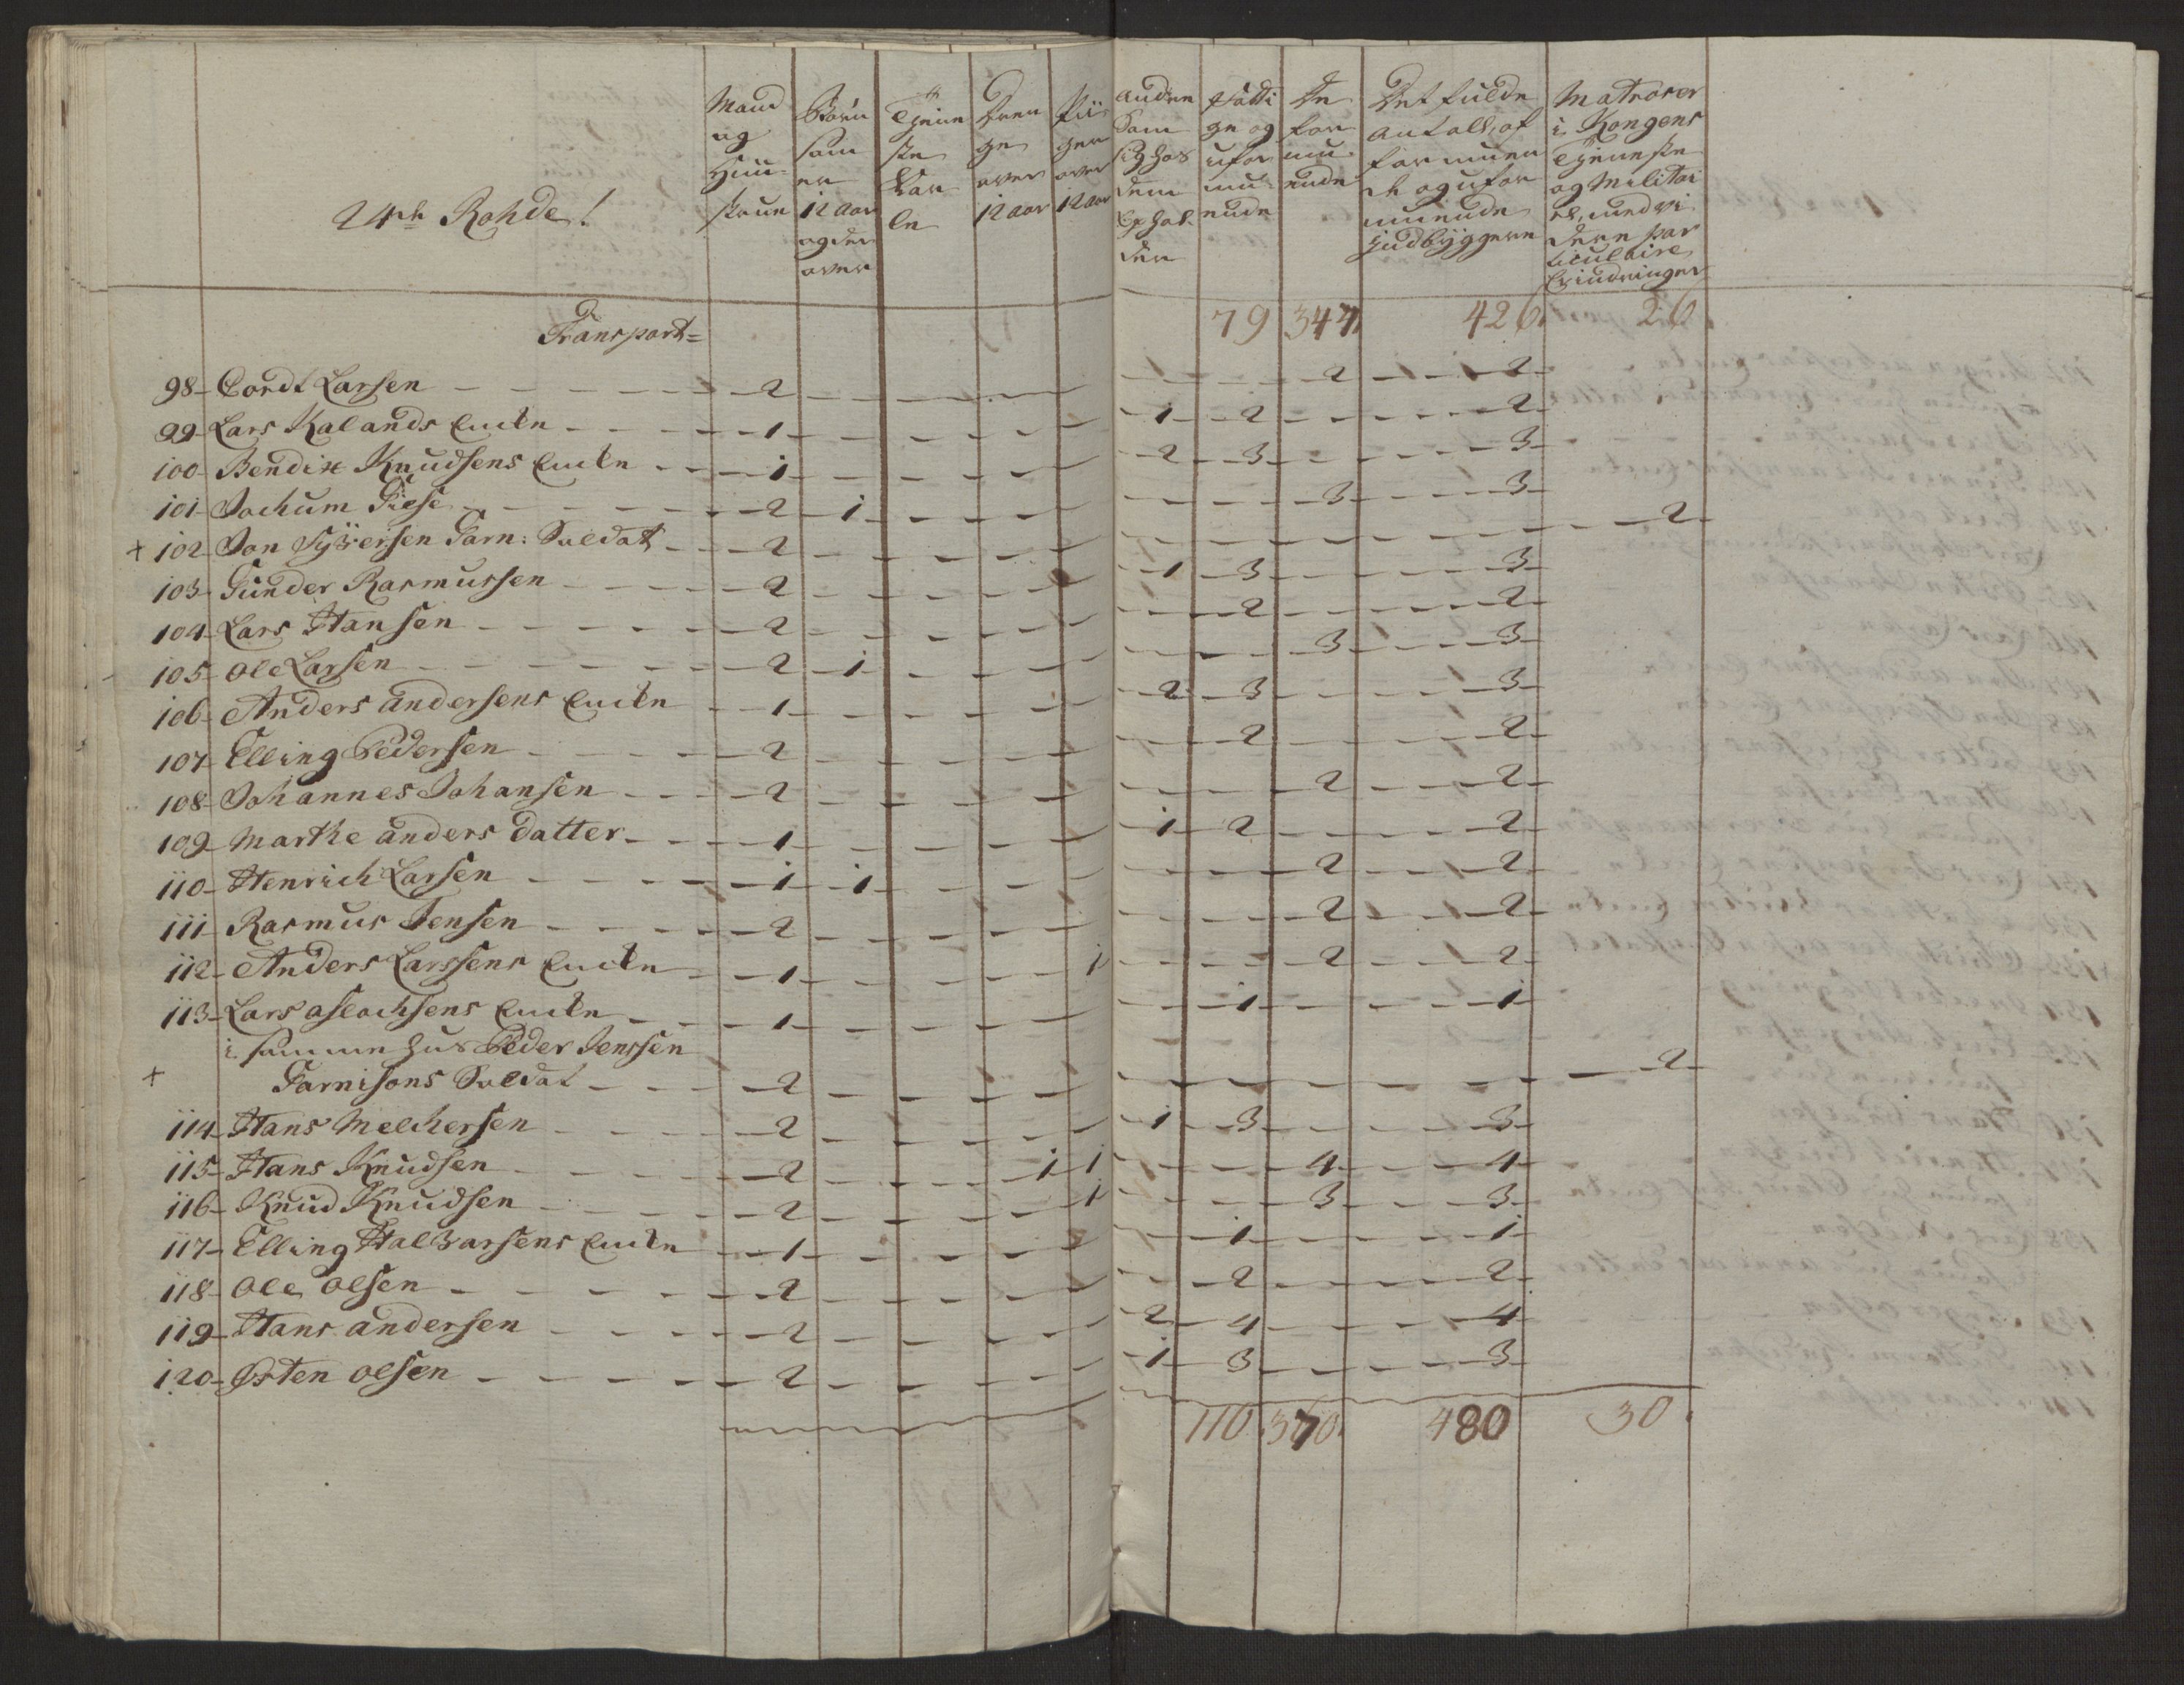 24de Rohde!
Mand og Hüü- stroue
Börn som er 12 aar og der over
Tjene ste Kar le
Dren ge over 12 aar
Pii ger over 12 aar
anden Som sig hos dem
fatti ge og ufor mu ende
De for mu ende
Det fulde antall, af formuen de og ufor muende Jndbyggere
Matroser i Kongens Tjeneste og Militai re, med vi dere par ticulaire Erindringer
Transport= 79 347 426 26
98- Cordt Larsen 2 2 2
99- Lars Kalands Encke 1 1 2 2
100- Bendix Knudsens Encke 1 2 3 3
101- Jochum Giese 2 1 3 3
+ 102- Jon Syversen Garn: Suldat 2 2
103- Gunder Rasmussen 2 1 3 3
104- Lars Hansen 2 2 2
105- Ole Larsen 2 1 3 3
106- Anders andersens Encke 1 2 3 3
107- Elling Pedersen 2 2 2
108- Johannes Johansen 2 2 2
109- Marthe anders datter 1 1 2 2
110- Henrich Larsen 1 1 2 2
111- Rasmus Jensen 2 2 2
112- Anders Larssens Encke 1 1 2 2
113- Lars aslachsens Encke 1 1 1
i samme Hus Peder Jenssen
+ Garnisons Suldat 2 2
114- Hans Melchersen 2 1 3 3
115- Hans Knudsen 2 1 1 4 4
116- Knud Knudsen 2 1 3 3
117- Elling Halvarsens Encke 1 1 1
118- Ole olsen 2 2 2
119- Hans andersen 2 2 4 4
120- Østen olsen 2 1 3 3
110 370 480 30